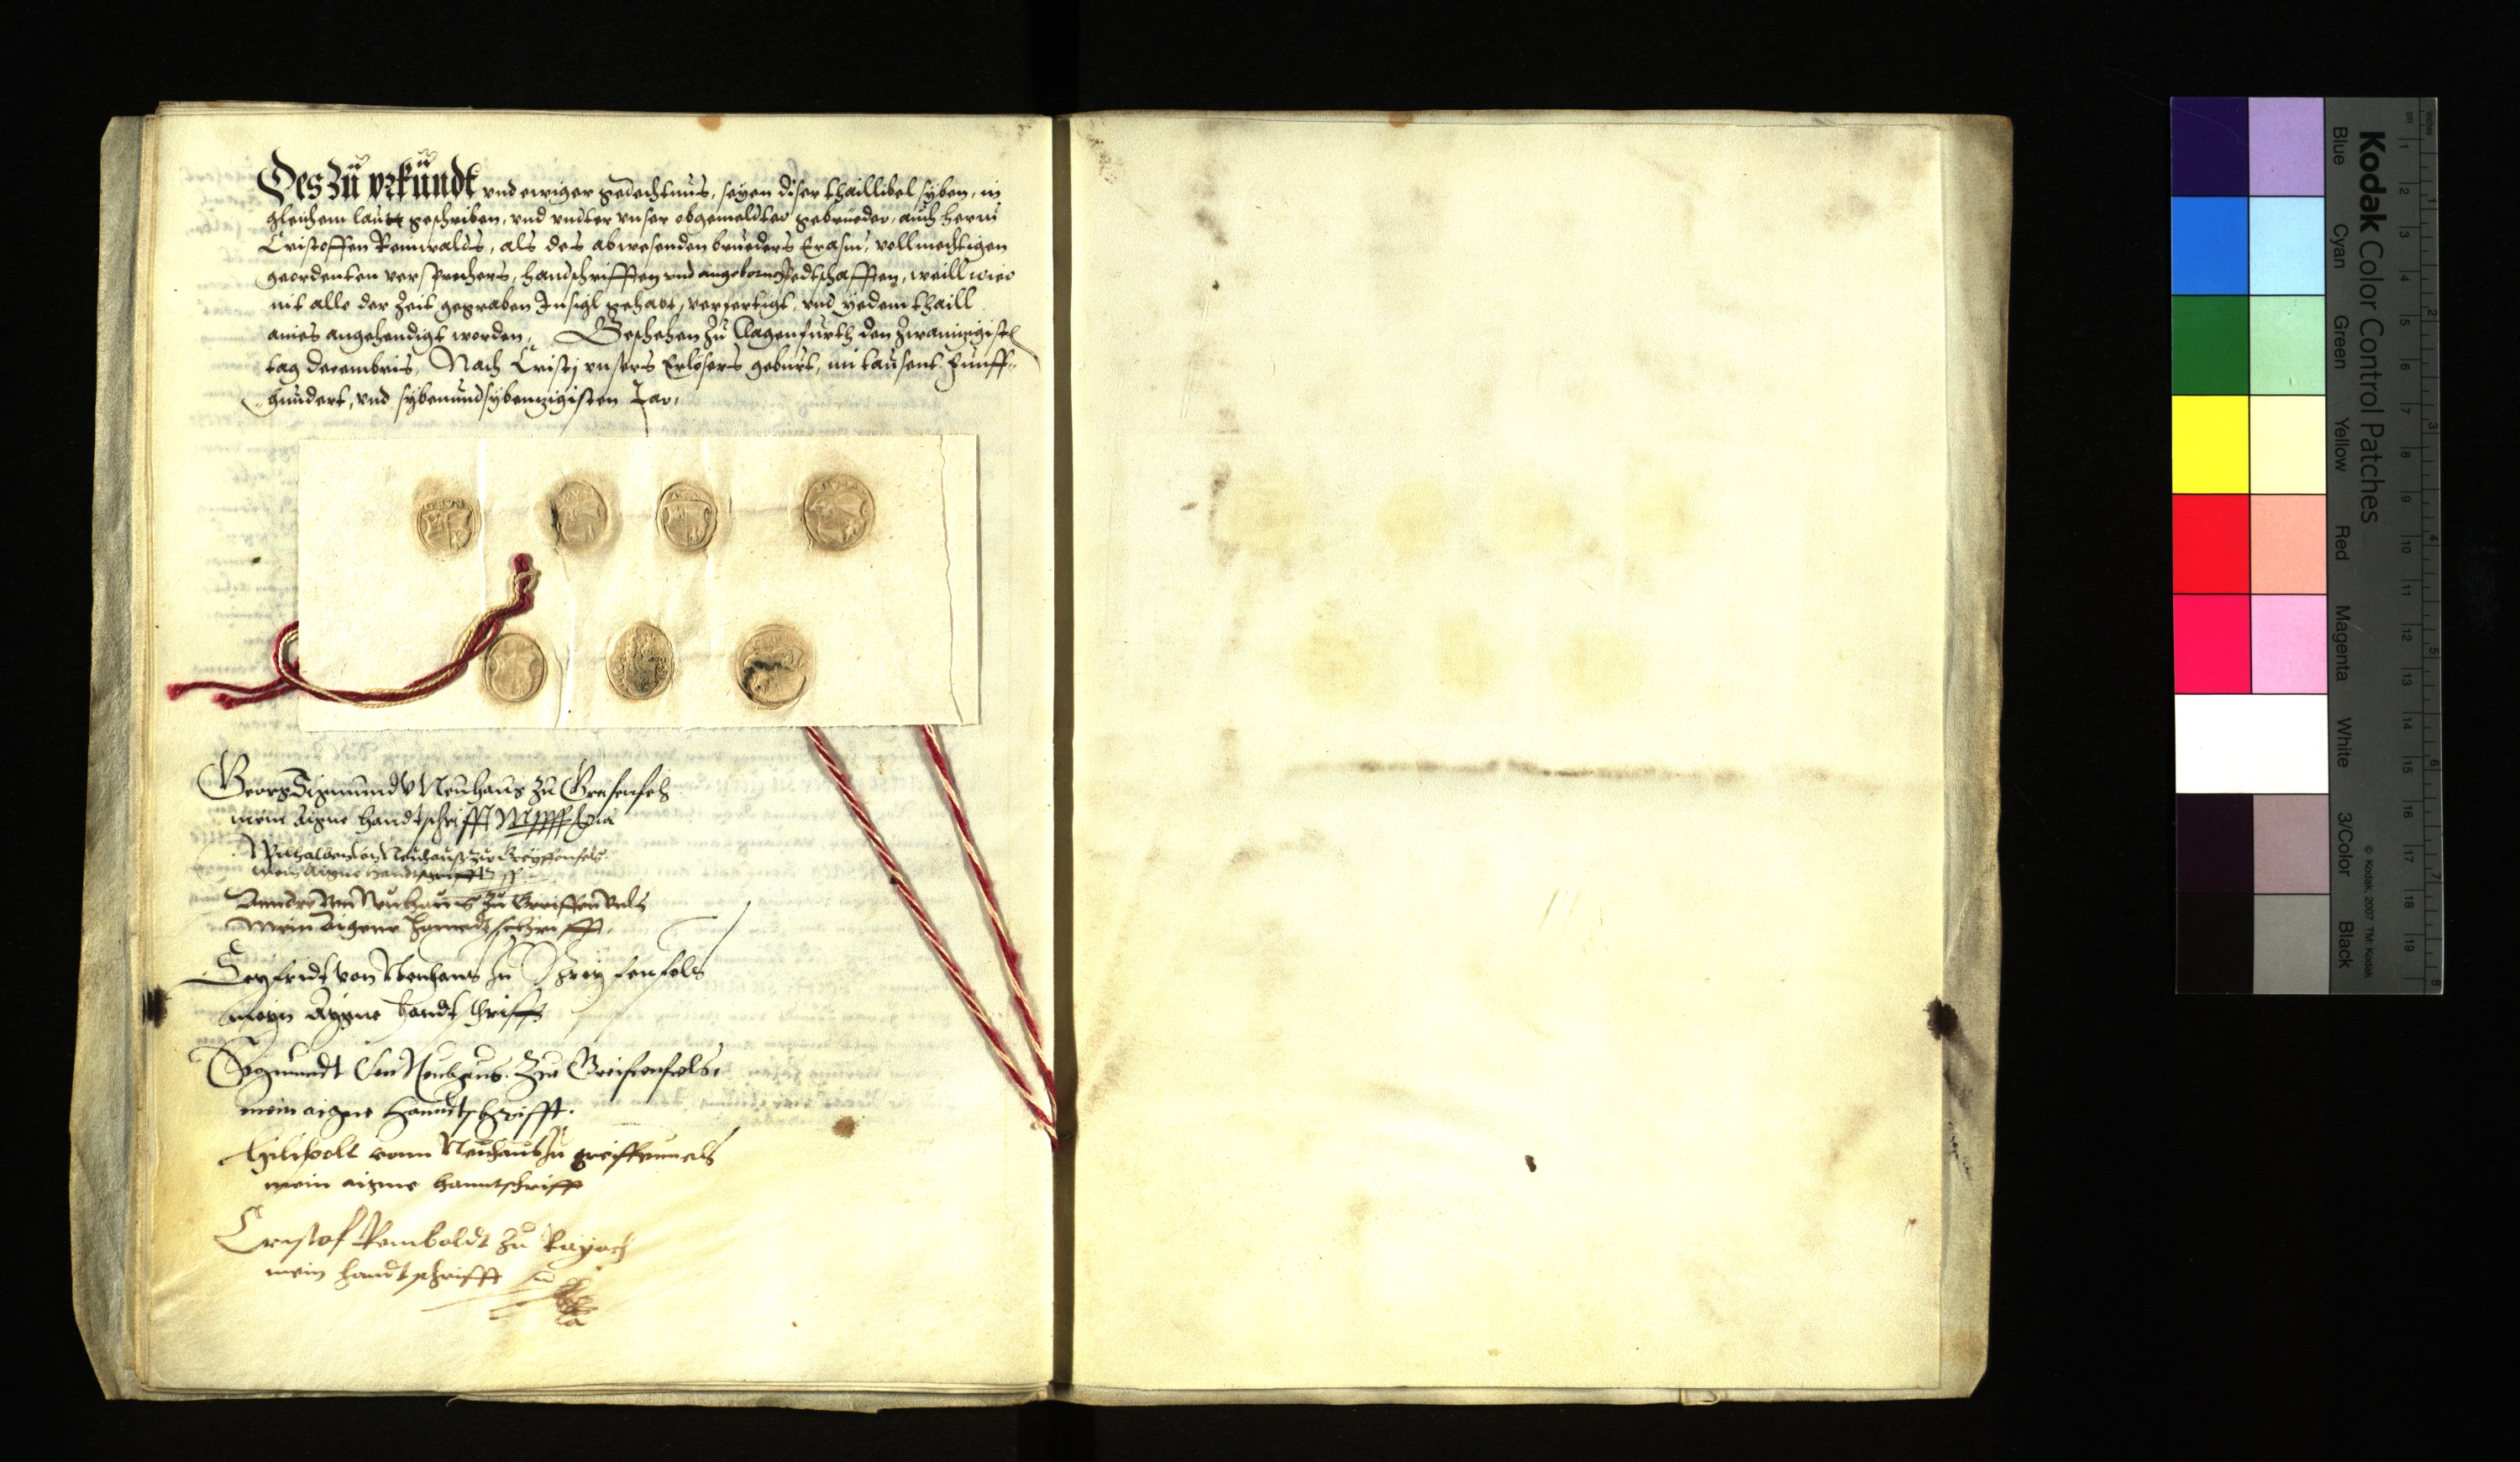 Des zu vrkundt vnd ewiger gedechtnus, seyen diser thaillibel syben, in
gleichem lautt geschriben, vnd vndter vnser obgemeldter gebrueder, auch herrn
Cristoffen Reinwalds, als des abwesenden brueders Erasm, vollmechtigen
geordenten versprechers, handschrifften vnd angebornen pedtschafften, weill wier
nit alle der Zeit gegraben Insigl gehabt, verfertigt, vnd yedem thaill
aines angehendigt worden, Beschehen zu Clagenfurth den Zwainzigisten
tag decembris, Nach Cristj vnsers Erlösers geburt, im tausent Funff-
hundert, vnd sybenundsybenzigisten Jar,
Georg Sigmund v Neuhaus zu Greifenfels
mein aigne handtschrifft
von Neuhaus zu Greyffenfels
mein aigne handtschrifft
Andre von Neuhaus zu Greiffenvels
mein aigene hanndtschrifft,
Seyfridt von Neuhaus zu Greyfenfels
meyn Aygne handtschrifft
Sigmundt von Neuhaus. Zu Greifenfels,
mein aigne Hanndtschrifft.
Hilipolt vonn Neuhaus zu greiffennels
mein aigne hanntschrifft
Cristof Remboldt zu
mein handtschrifft
Kodak Color Control Patches
Blue Cyan Green Yellow Red Magenta White 3/Color Black
© Kodak, 2007 TM: Kodak
inches 1 2 3 4 5 6 7 8
cm 1 2 3 4 5 6 7 8 9 10 11 12 13 14 15 16 17 18 19